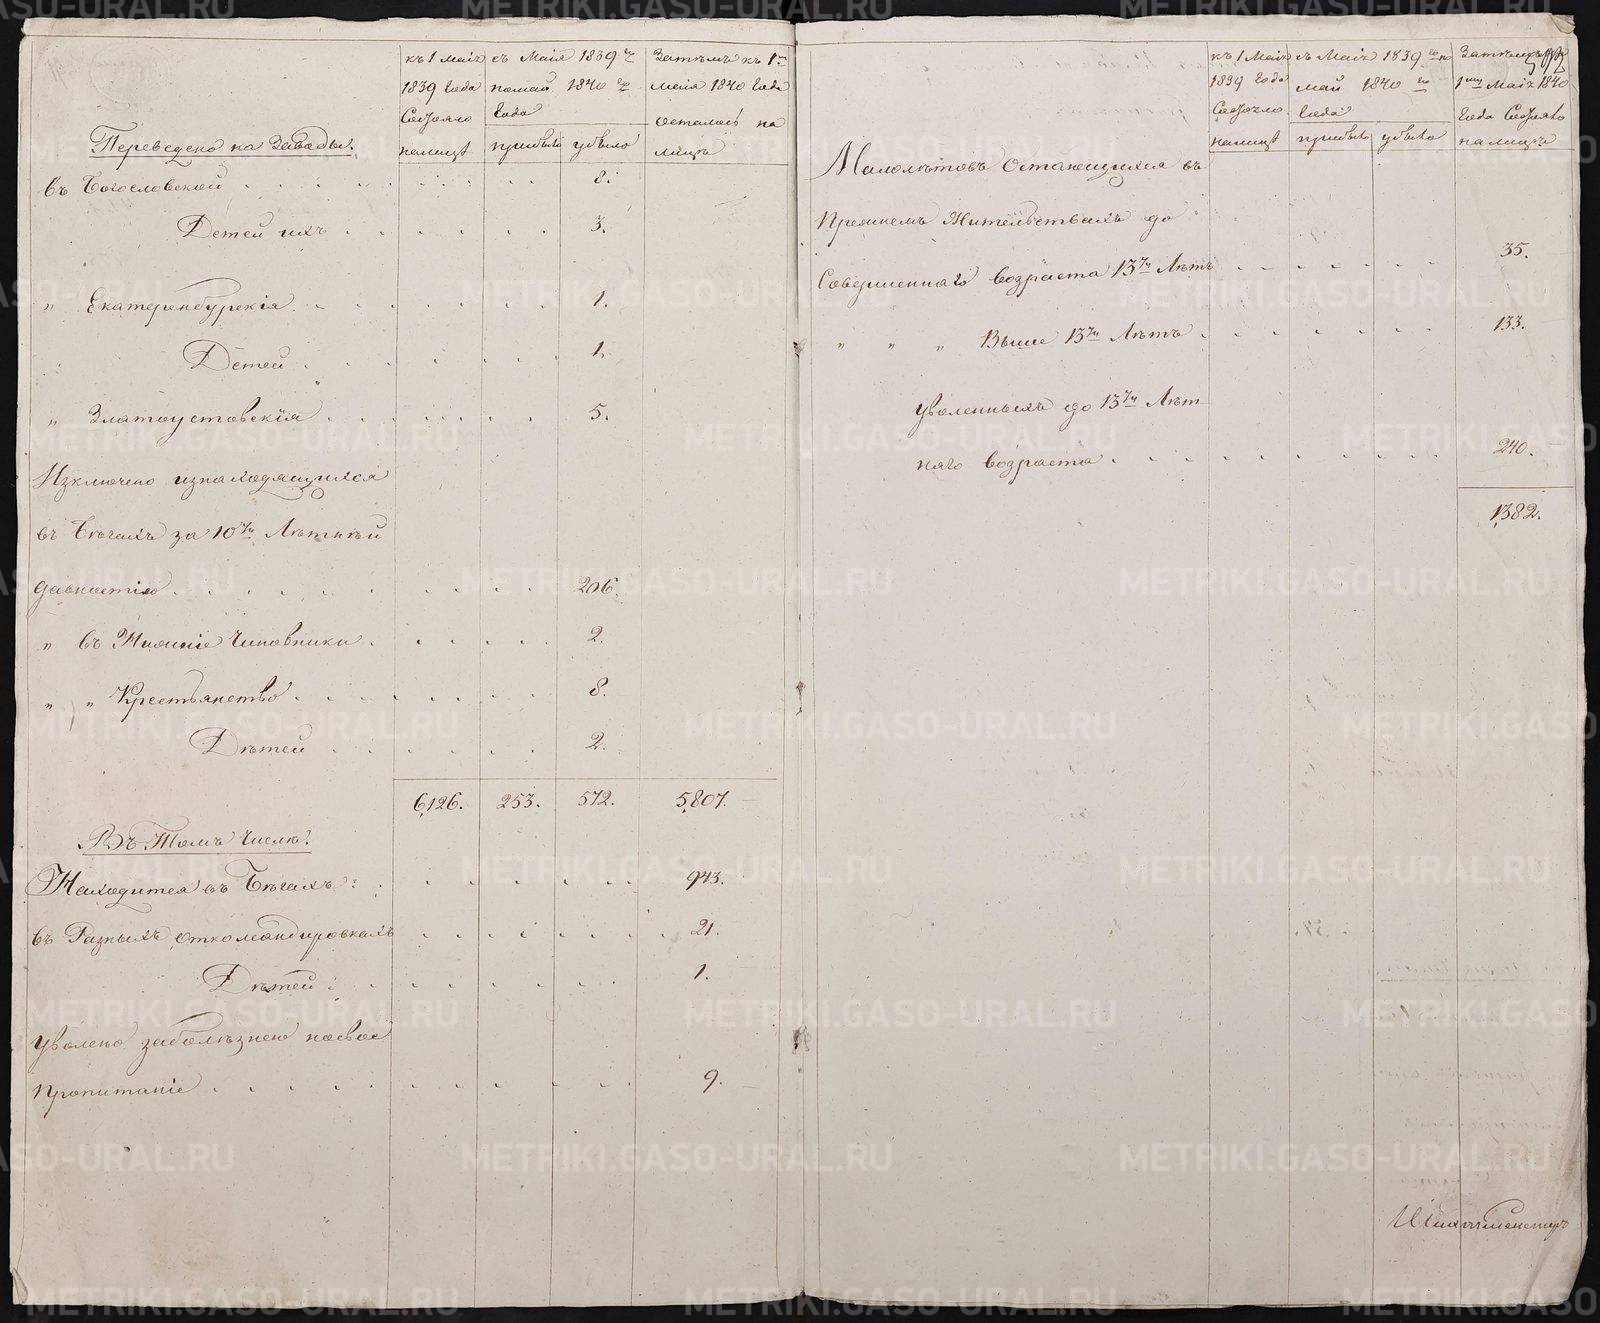 къ 1 Маія съ Маія 1839 го Затѣмъ къ 1му
1839 года помай 1840 го маія 1840 года
Состояло года осталось на
налицѣ прибыло убыло лицѣ
Переведено на Заводы:
въ Богословской 8.
Детей ихъ 3.
„ Екатеренбурскія 1.
Детей 1.
„ Златоустовскія 5.
Изключено изнаходящихся
въ Бѣгахъ за 10ти Лѣтнѣй
давностію 206.
„ въ Нижніе Чиновники 2.
„ „ Крестьянство 8.
Дѣтей 2.
6,126. 253. 572. 5,807.
Въ Томъ Числѣ:
Находится въ Бѣгахъ: 943.
въ Разныхъ откомандировкахъ 21.
Дѣтей: 1.
Уволено заболѣзнею насвое
пропитаніе 9.
къ 1 Маія съ Маія 1839 го по Затѣмъ къ
1839 года май 1840 го 1му Маія 1840
Состояло года года Состоялъ
налицѣ прибыло убыло налицѣ
Малолѣтовъ Остающихся въ
Прежнемъ Жительствахъ до
Совершеннаго возраста 13ти Лѣтъ 35.
„ „ „ Выше 13ти Лѣтъ 133.
Уволенныхъ до 13ти Лѣт
няго возраста 240.
1,382.
METRIKI.GASO-URAL.RU